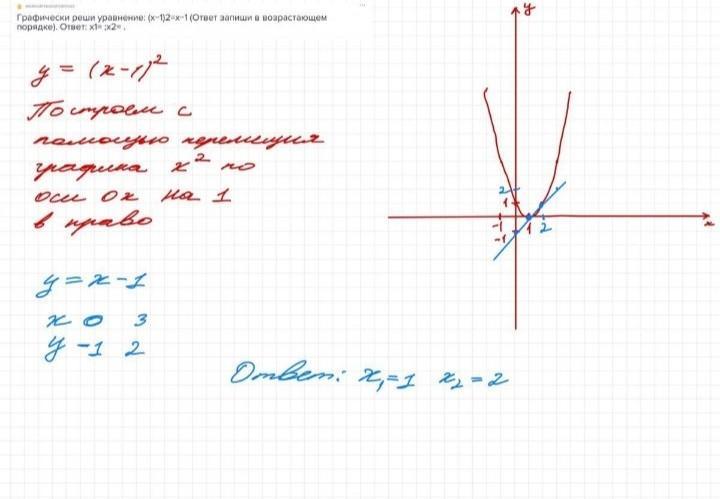 Графически реши уравнение: (x-1)2=x-1 (Ответ запиши в возрастающем
порядке). Ответ: x1= ;x2= .
y = (x-1)²
Построем с
помощью перемещия
графика x² по
оси Ox на 1
в право
y = x - 1
x 0 3
y -1 2
Ответ: x₁=1 x₂=2
y
2
1
-1
1
2
-1
x